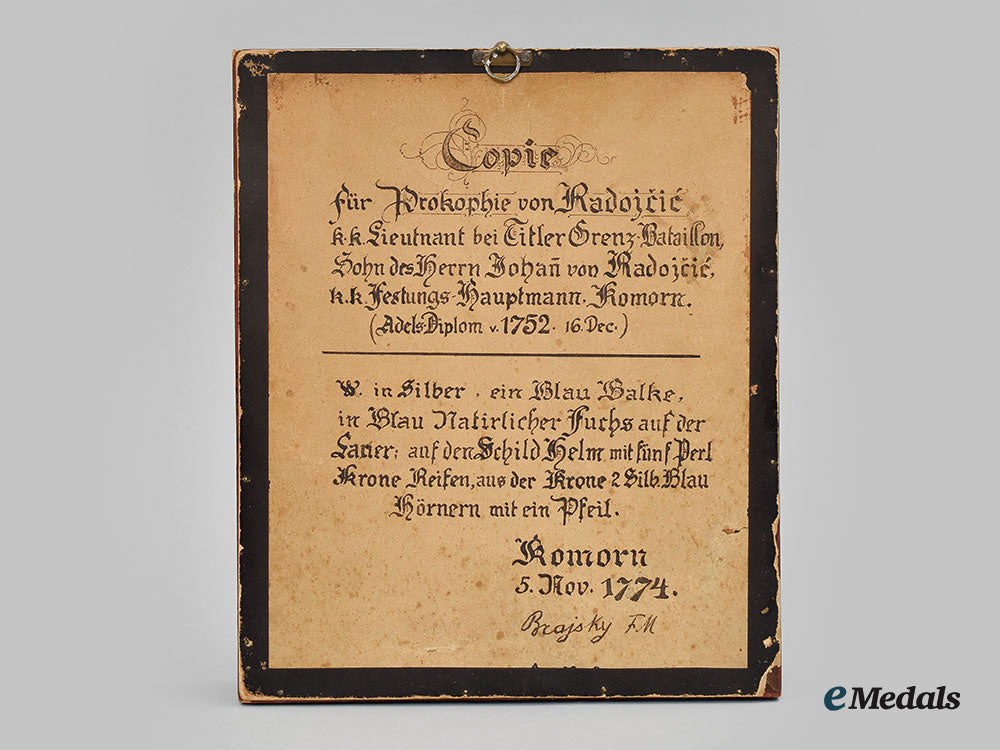 Copie
für Prokophie von Radojčić
k.k. Lieutnant bei Titler Grenz-Bataillon,
Sohn des Herrn Johan̄ von Radojčić,
k.k. Festungs-Hauptmann. Komorn.
(Adels-Diplom v. 1752. 16. Dec.)
W. in Silber, ein Blau Balke,
in Blau Natirlicher Fuchs auf der
Lauer; auf den Schild Helm mit fünf Perl
Krone Reifen, aus der Krone 2 Silb. Blau
Hörnern mit ein Pfeil.
Komorn
5. Nov. 1774.
Brajsky FM
eMedals